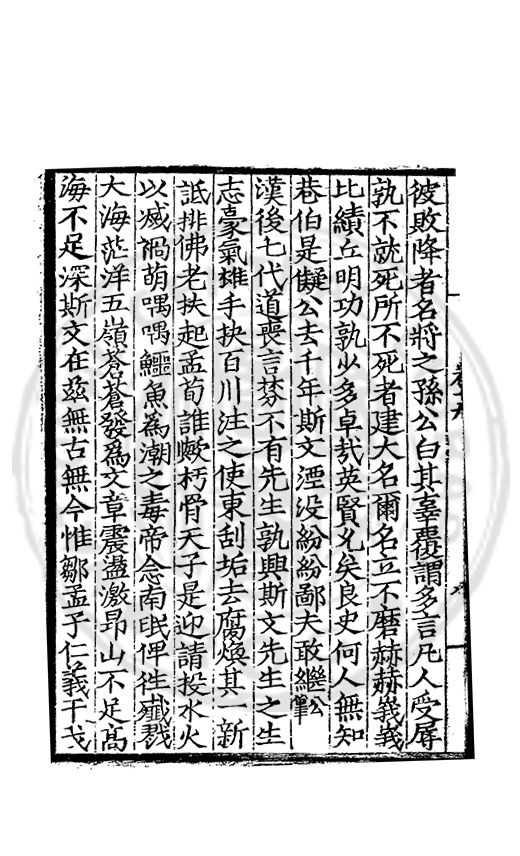 彼敗降者名將之孫公白其辜覆謂多言凡人受辱
孰不就死所不死者建大名爾名立不磨赫赫義義
比績丘明功孰少多卓哉英賢兇矣良史何人無知
巷伯是儗公去千年斯文湮没紛紛鄙夫敢繼公筆
漢後七代道喪言棼不有先生孰興斯文先生之生
志豪氣雄手抉百川注之使東刮垢去腐煥其一新
詆排佛老扶起孟荀誰噘朽骨天子是迎請投水火
以滅禍萌喁喁鱷魚為潮之毒帝念南氓俾徃殲戮
大海茫洋五嶺蒼蒼發為文章震盪激昂山不足高
海不足深斯文在兹無古無今惟鄒孟子仁義干戈